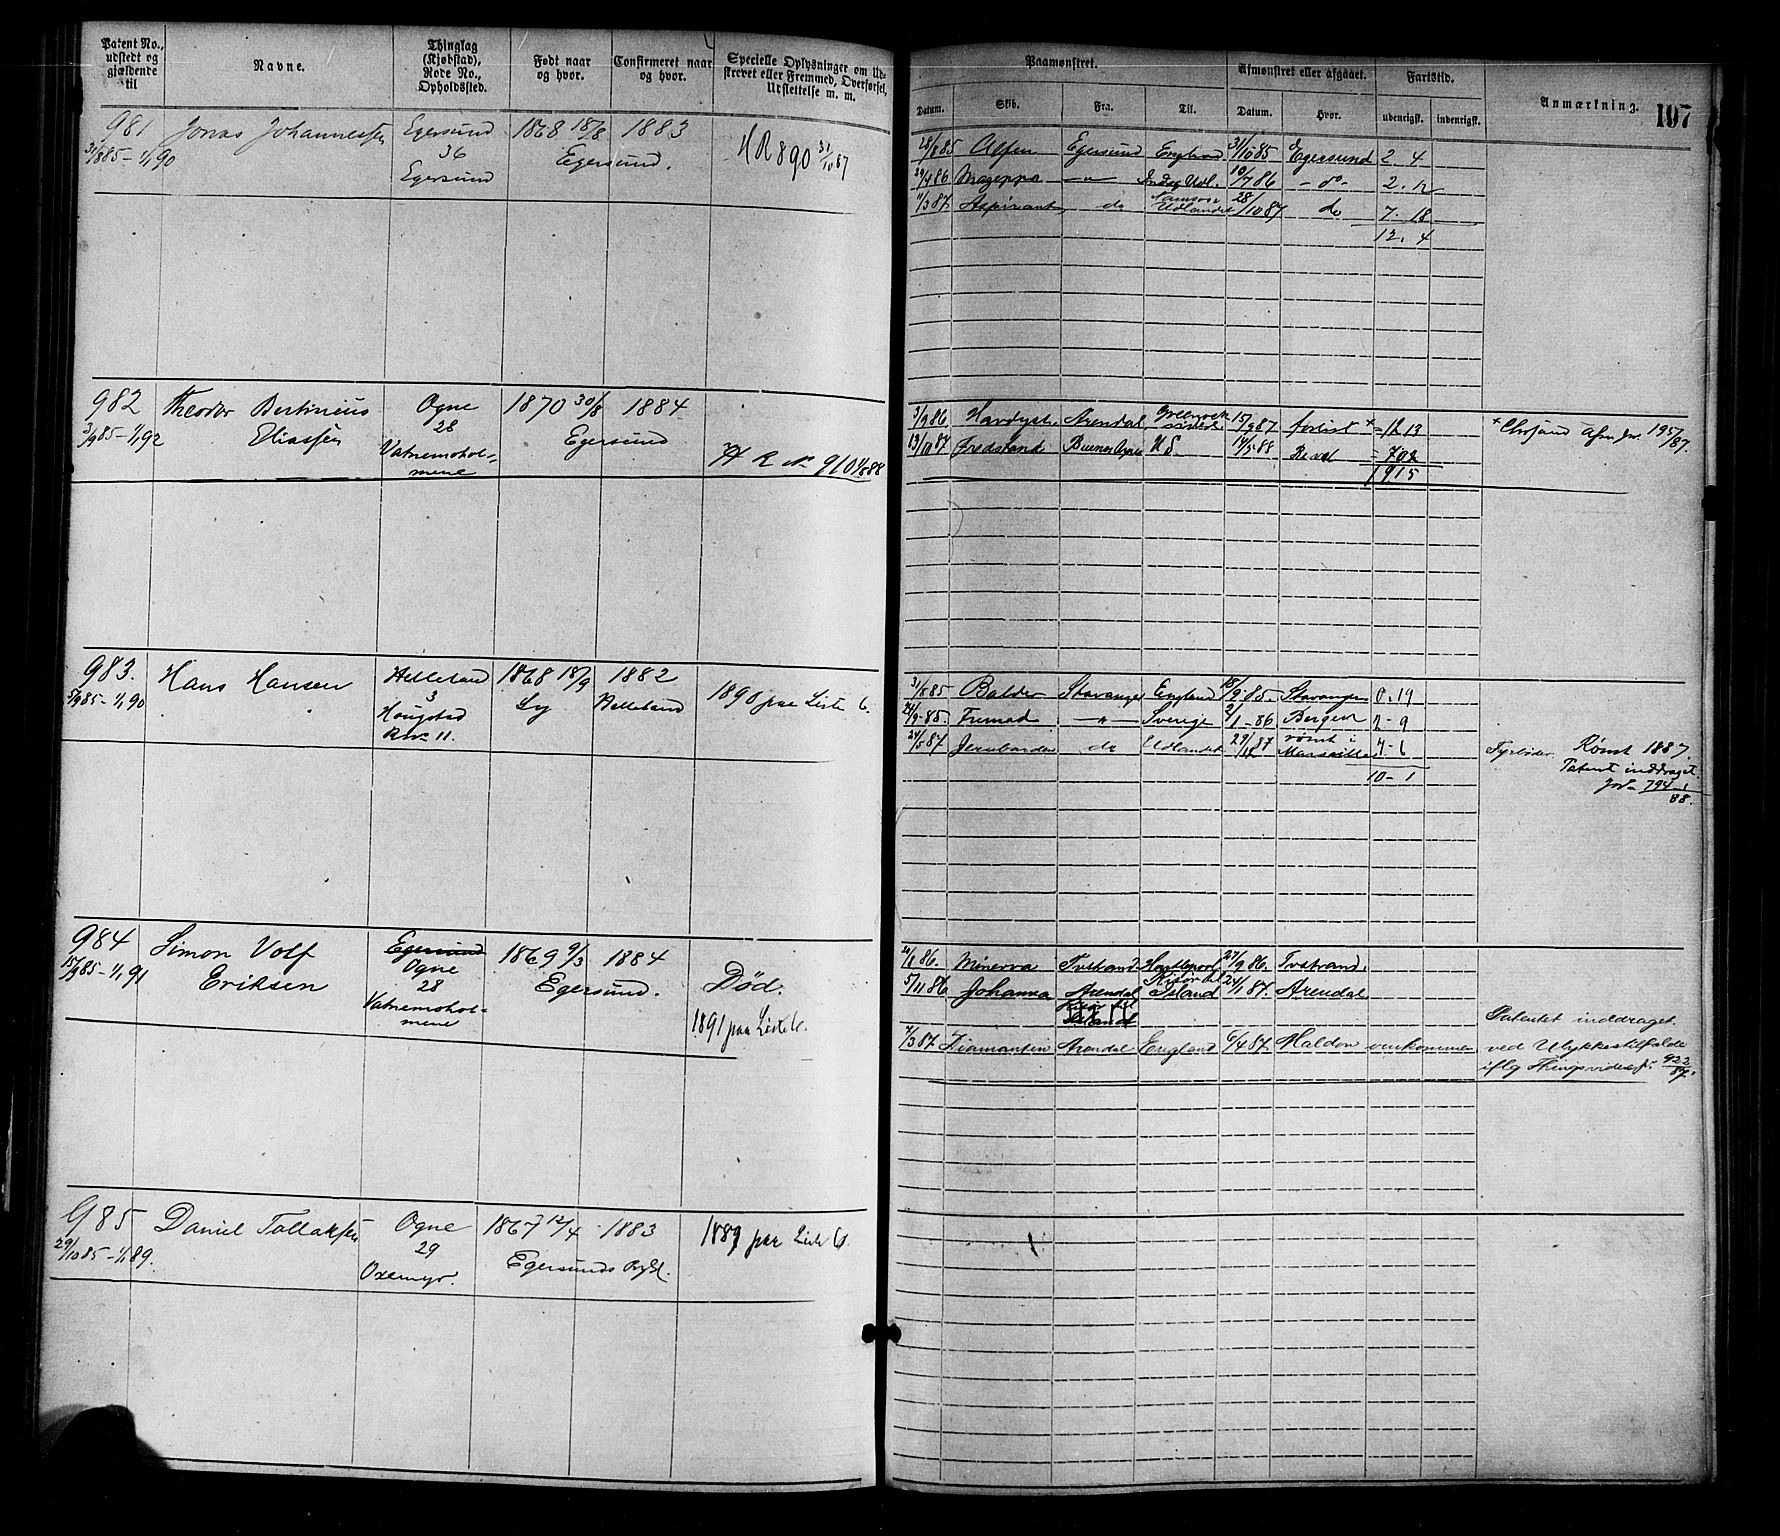 Patent No., udstedt og gjældende til
Navne.
Thinglag (Kjøbstad), Rode No., Opholdssted.
Født naar og hvor.
Confirmeret naar og hvor.
Specielle Oplysninger om Udskrevet eller Fremmed, Overførsel, Udslettelse m. m.
Paamønstret.
Afmønstret eller afgaaet.
Fartstid.
Anmærkning.
107
Datum.
Skib.
Fra.
Til.
Datum.
Hvor.
udenrigsk.
indenrigsk.
981 Jonas Johannessen Egersund 1868 18/8 1883
31/8 85 - 1/1 90 36 Egersund. HR 890 31/10 87
Egersund
28/8 85 Alfen Egersund England 31/10 85 Egersund 2 4
29/4 86 Mazeppa — " — Indl. Udl. 10/7 86 - do - 2. 12
11/3 87 Aspirant do Udlandet 28/10 87 do 7. 18
12. 4
982 Theodor Bertinius Ogne 1870 30/8 1884
3/9 85 - 1/1 92 Eliassen 28 Egersund
Vatnemohol=
mene
H R No 910
3/9 86 Havdyst Arendal Greenock 15/9 87 forlist + = 12 13 + Chrsand Afm. Jr. 195/87.
13/10 87 Fredstrand Buenos Ayres U S. 14/5 88 Reval = 7 02
19 15
983. Hans Hansen Helleland 1868 18/9 1882
5/9 85 - 1/1 90 3 Ly Helleland 1890 paa Liste C.
Hougstad
Rno 11.
31/8 85 Balder Stavanger England 18/9 85. Stavanger 0. 19
24/9 - 85. Fremad — " — Sverige 2/1 - 86 Bergen 2 - 9
24/5 87 Jernbarden do Udlandet 29/ 87 rømt i Marseilles 7 - 6 Fyrbøder Rømt 1887.
10 - 1 Patent inddraget.
Jno 794/88.
984 Simon Volf Egersund 1869 9/3 1884
15/9 85 - 1/1 91 Eriksen Ogne Egersund. Død.
28
Vatnemohol=
mene
1891 paa Liste C.
20/1 86. Minerva Tvstrand. Hartlepool 27/9 86. Tvstrand.
5/11 86 Johanna Arendal Island 24/1 87. Arendal
7/3 87. Diamanten Arendal England 6/4 87. Maldon omkommen
Patentet inddraget
ved Ulykkestilfælde
iflg Thingsvidesf. 922/87.
985 Daniel Tollaksen Ogne 1867 12/4 1883 1889 paa Liste C.
29/10 85 - 1/1 89. 29 Egersunds
Oxemyr.